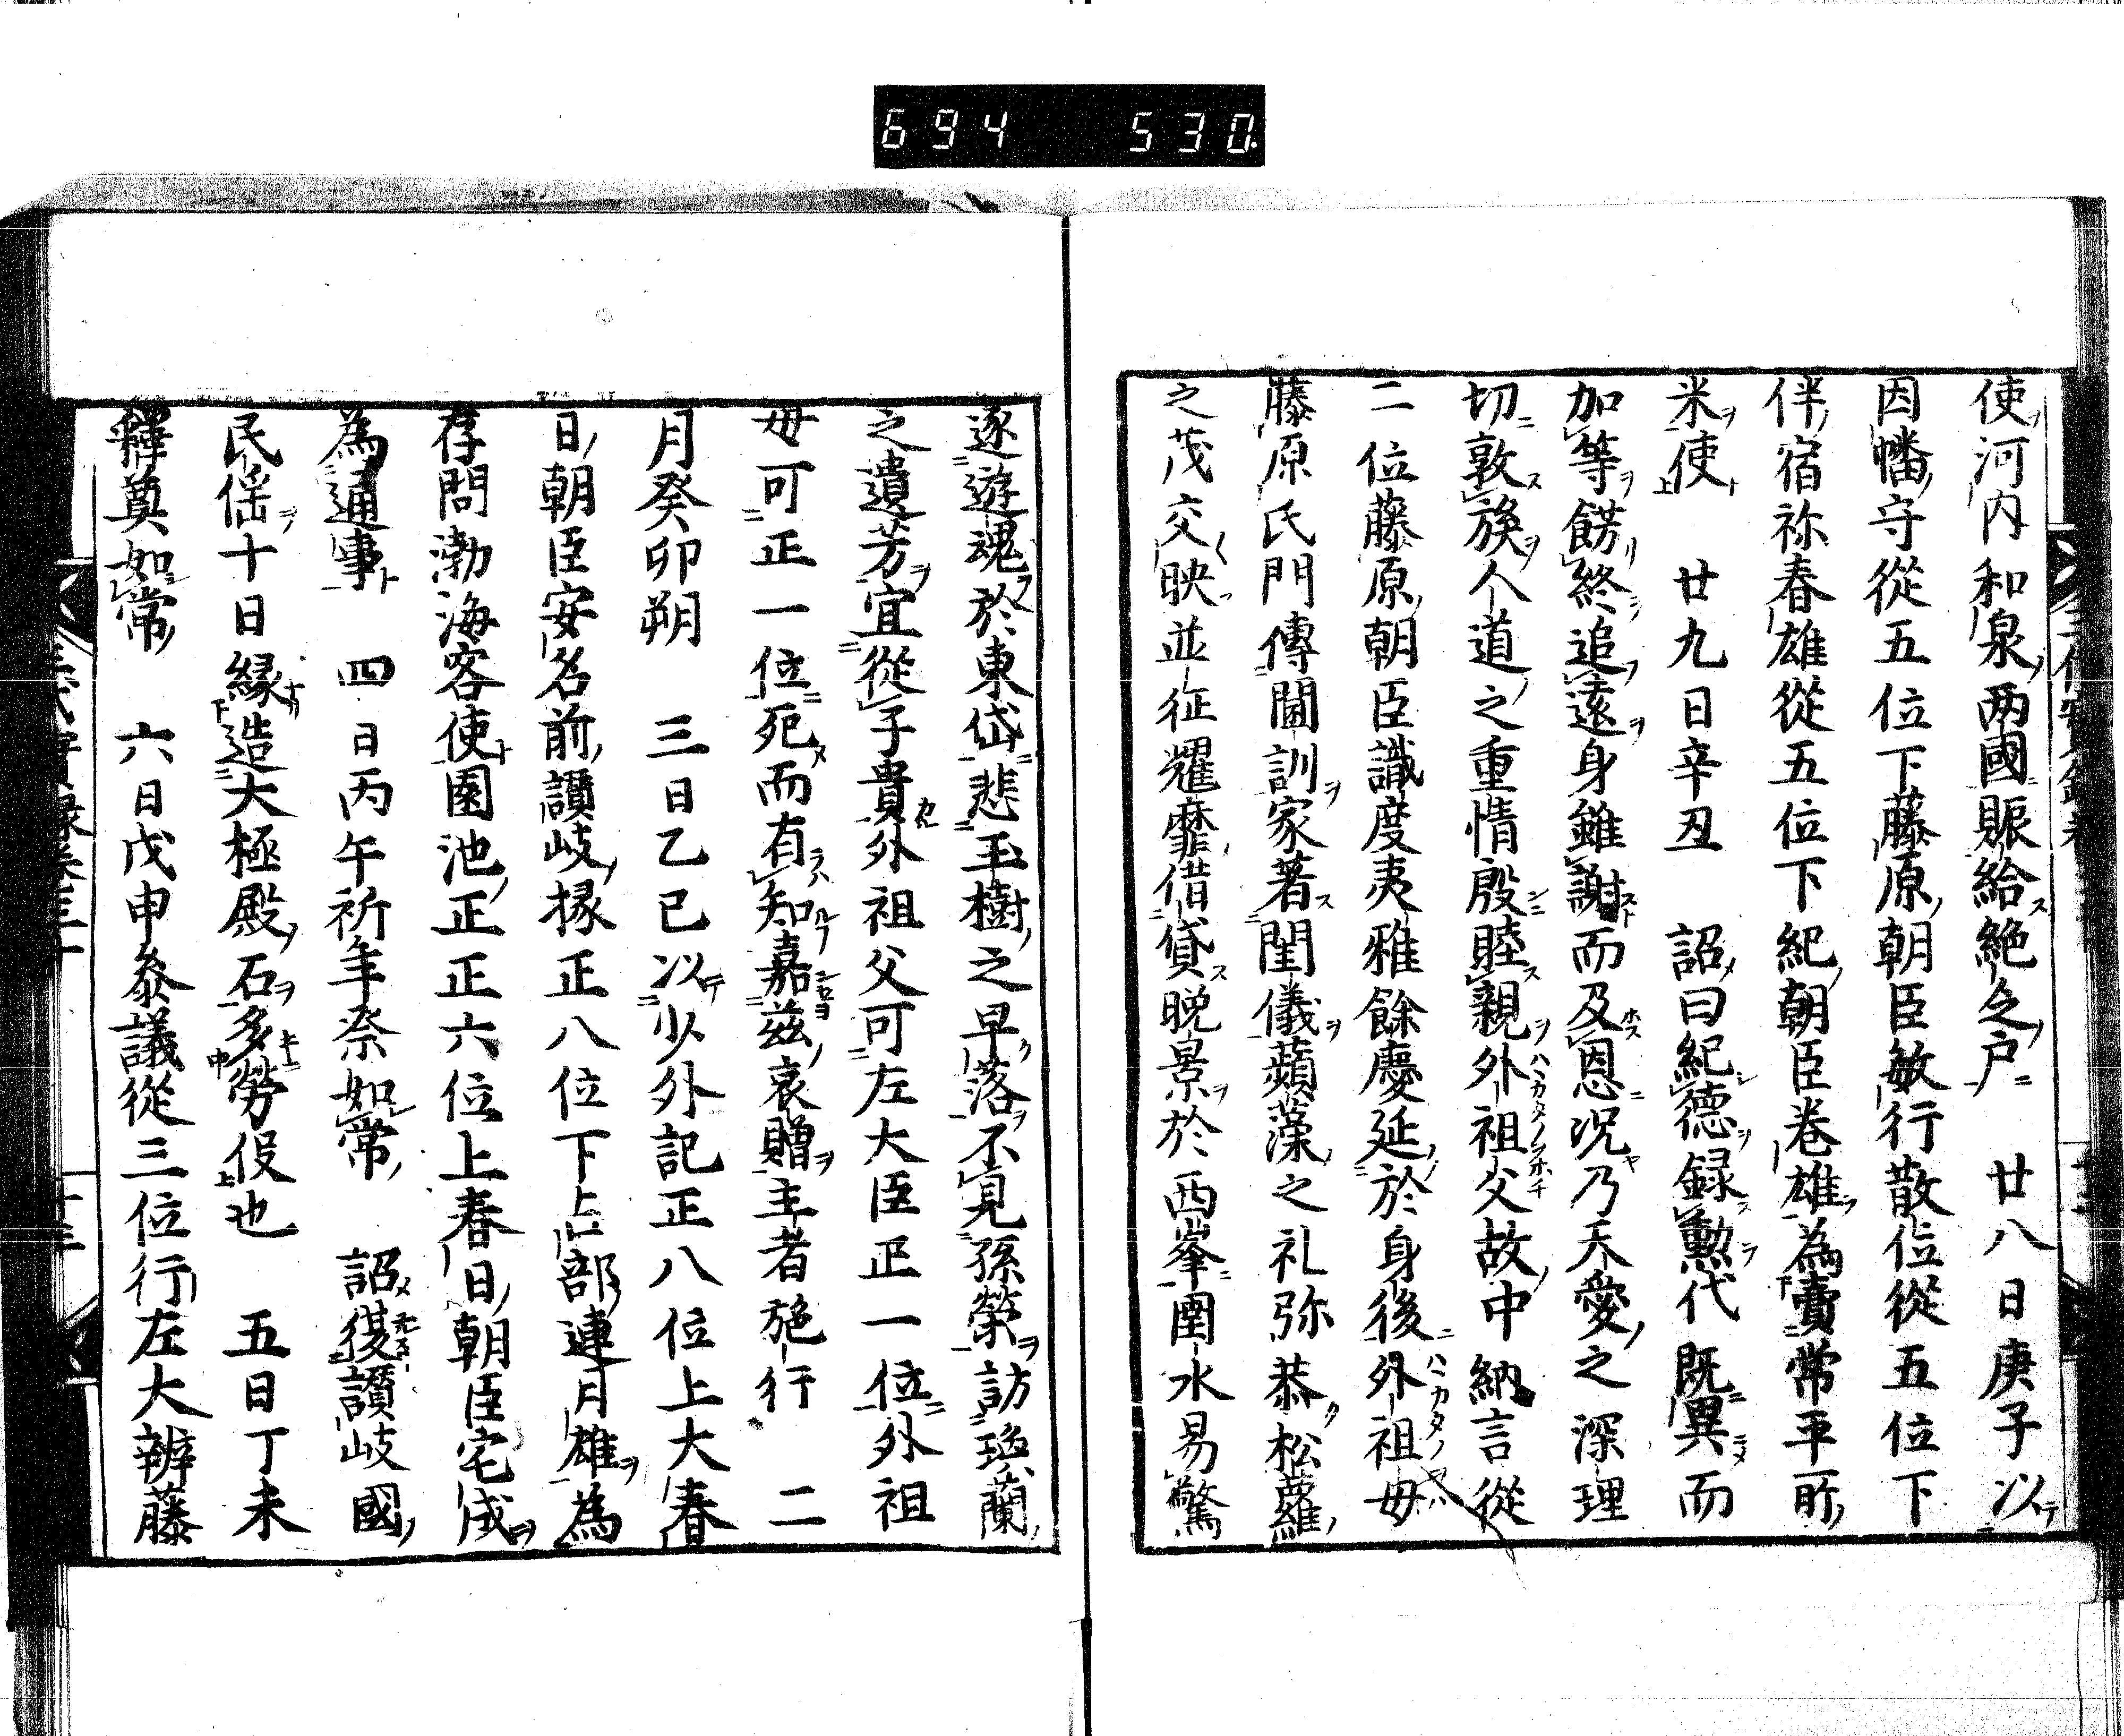 694 530
使河内和泉両國賑給絶乏戸 廿八日庚子以
因幡守從五位下藤原朝臣敏行散位從五位下
伴宿祢春雄從五位下紀朝臣巻雄為賣常平所
米使 廿九日辛丑 詔曰紀德録勲代既異而
加等餝終追遠身雖謝而及恩况乃天愛之深理
切敦族人道之重情殷睦親外祖父故中納言從
二位藤原朝臣識度夷雅餘慶延於身後外祖母
藤原氏門傳閫訓家著閨儀蘋藻之礼弥恭松蘿
之茂交映並征耀靡借貸晩景於西峯閲水易驚
逐遊魂於東岱悲玉樹之早落不見孫榮訪瑶蘭
之遺芳宜從子貴外祖父可左大臣正一位外祖
母可正一位死而有知嘉兹哀贈主者施行 二
月癸卯朔 三日乙巳以少外記正八位上大春
日朝臣安名前讃岐掾正八位下占部連月雄為
存問渤海客使園池正正六位上春日朝臣宅成
為通事 四日丙午祈年祭如常 詔復讃岐國
民徭十日縁造大極殿石多勞役也 五日丁未
釋奠如常 六日戊申叅議從三位行左大辨藤